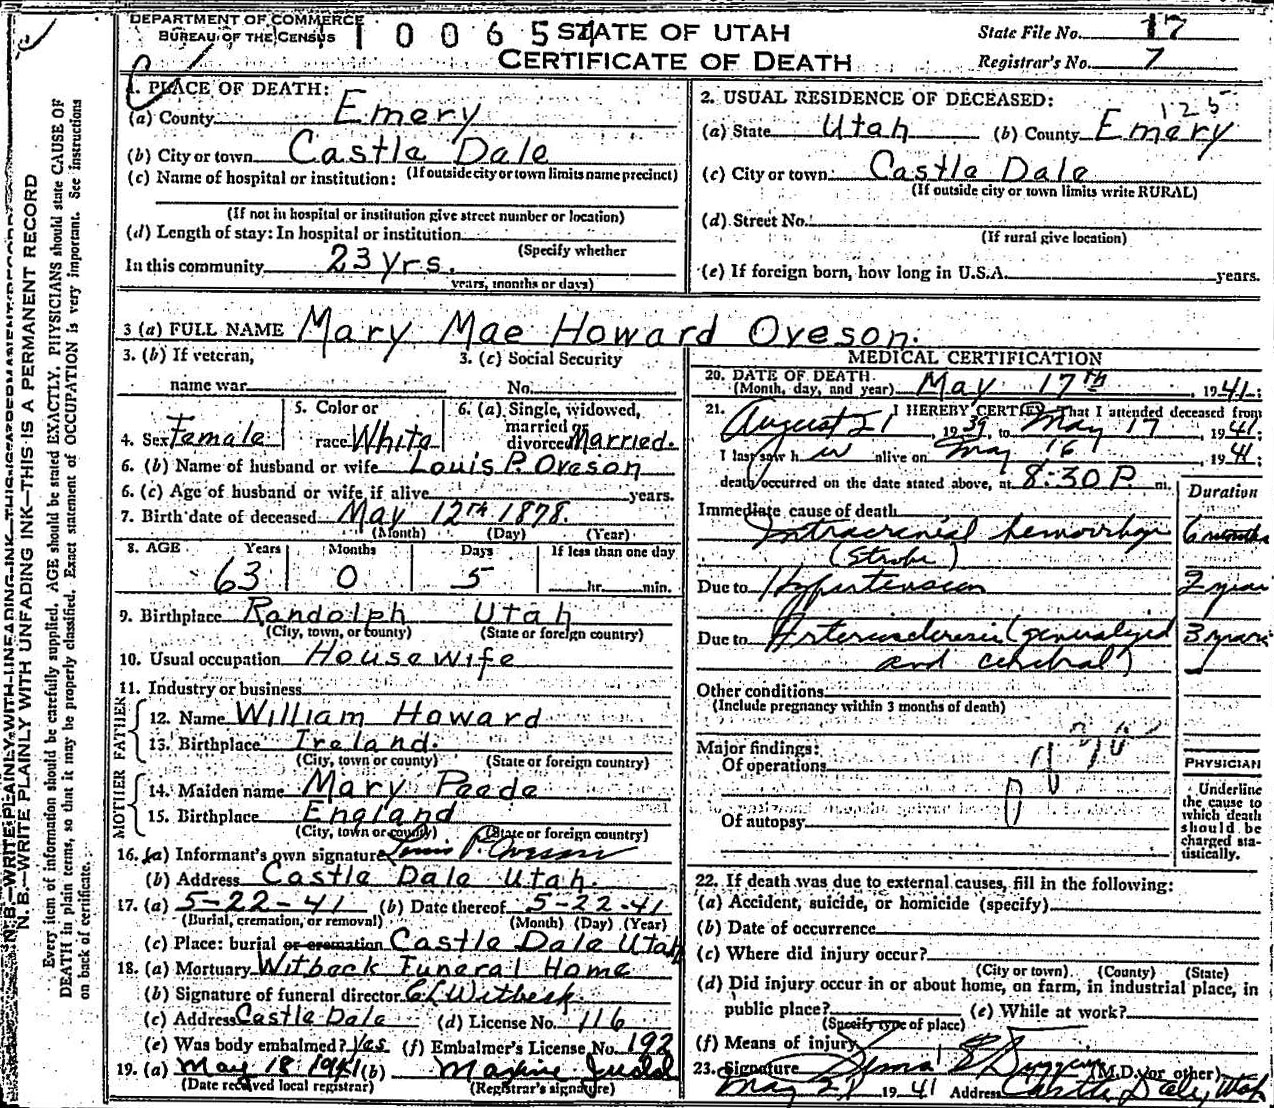 DEPARTMENT OF COMMERCE
BUREAU OF THE CENSUS
10065
STATE OF UTAH
CERTIFICATE OF DEATH
State File No. 17
Registrar's No. 7
1. PLACE OF DEATH:
(a) County Emery
(b) City or town Castle Dale
(If outside city or town limits name precinct)
(c) Name of hospital or institution:
(If not in hospital or institution give street number or location)
(d) Length of stay: In hospital or institution
(Specify whether
In this community 23 yrs.
years, months or days)
2. USUAL RESIDENCE OF DECEASED: 125
(a) State Utah (b) County Emery
(c) City or town: Castle Dale
(If outside city or town limits write RURAL)
(d) Street No.
(If rural give location)
(e) If foreign born, how long in U.S.A. years.
3 (a) FULL NAME Mary Mae Howard Oveson.
3. (b) If veteran,
name war
3. (c) Social Security
No.
4. Sex Female
5. Color or
race White
6. (a) Single, widowed,
married or
divorced Married.
6. (b) Name of husband or wife Louis P. Oveson
6. (c) Age of husband or wife if alive years.
7. Birth date of deceased May 12th 1878.
(Month) (Day) (Year)
8. AGE Years Months Days If less than one day
63 0 5 hr. min.
9. Birthplace Randolph Utah
(City, town, or county) (State or foreign country)
10. Usual occupation Housewife
11. Industry or business
FATHER
12. Name William Howard
13. Birthplace Ireland.
(City, town or county) (State or foreign country)
MOTHER
14. Maiden name Mary Peede
15. Birthplace England
(City, town or county) (State or foreign country)
16. (a) Informant's own signature Louis P. Oveson
(b) Address Castle Dale Utah.
17. (a) 5-22-41 (b) Date thereof 5-22-41
(Burial, cremation, or removal) (Month) (Day) (Year)
(c) Place: burial or cremation Castle Dale Utah
18. (a) Mortuary Witbeck Funeral Home
(b) Signature of funeral director C L Witbeck
(c) Address Castle Dale (d) License No. 116
(e) Was body embalmed? Yes (f) Embalmer's License No. 192
19. (a) May 18 1941 (b) Maxine Judd
(Date received local registrar) (Registrar's signature)
MEDICAL CERTIFICATION
20. DATE OF DEATH
(Month, day, and year) May 17th, 1941:
21. I HEREBY CERTIFY That I attended deceased from
August 21, 1939, to May 17, 1941:
I last saw her alive on May 16 1941;
death occurred on the date stated above, at 8:30 P. m.
Duration
Immediate cause of death
Intracranial hemorrhage 6 months
(Stroke)
Due to Hypertension 2 years
Due to Arteriosclerosis (generalized 3 years
and cerebral)
Other conditions
(Include pregnancy within 3 months of death)
Major findings:
Of operations
Of autopsy
PHYSICIAN
Underline
the cause to
which death
should be
charged sta-
tistically.
22. If death was due to external causes, fill in the following:
(a) Accident, suicide, or homicide (specify)
(b) Date of occurrence
(c) Where did injury occur?
(City or town) (County) (State)
(d) Did injury occur in or about home, on farm, in industrial place, in
public place? (e) While at work?
(Specify type of place)
(f) Means of injury
23. Signature (M.D. or other)
May 21 1941 Address Castle Dale, Utah
N. B.—WRITE PLAINLY WITH UNFADING INK—THIS IS A PERMANENT RECORD
Every item of information should be carefully supplied. AGE should be stated EXACTLY. PHYSICIANS should state CAUSE OF
DEATH in plain terms, so that it may be properly classified. Exact statement of OCCUPATION is very important. See instructions
on back of certificate.